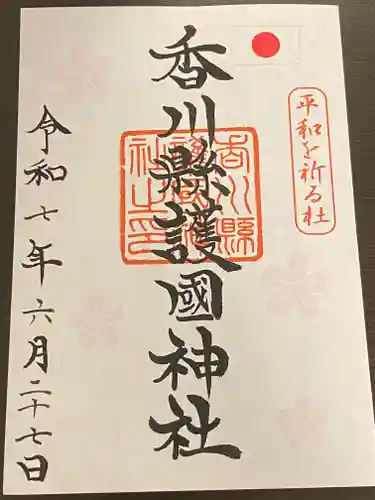 平和を祈る社
香川縣護國神社
香川縣護國神社之印
令和七年六月二十七日